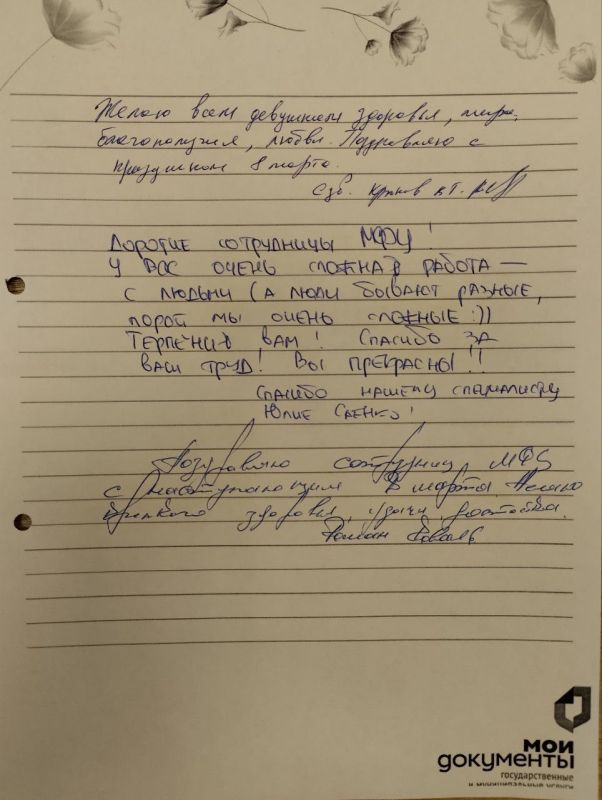 Желаю всем девушкам здоровья, мира,
благополучия, любви. Поздравляю с
праздником 8 марта.
Дорогие сотрудницы МФЦ!
У вас очень сложная работа —
с людьми (а люди бывают разные,
порой мы очень сложные :))
Терпения вам! Спасибо за
ваш труд! Вы прекрасны!!
Спасибо нашему специалисту
Юлие Саенко!
Поздравляю сотрудниц МФЦ
с наступающим 8 марта. Желаю
крепкого здоровья, удачи, достатка.
Роман Коваль
мои
документы
государственные
и муниципальные услуги